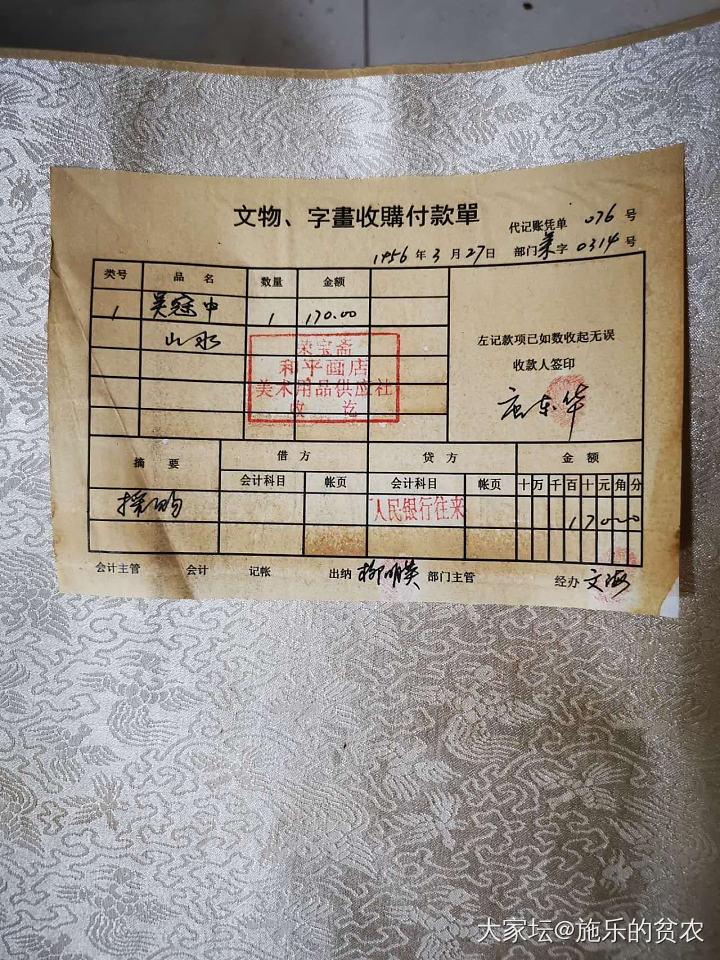 文物、字畫收購付款單
代记账凭单 076 号
1956 年 3 月 27 日 部门 菜 字 0314 号
类号 品名 数量 金额
1 吴冠中 1 170.00
山水
左记款项已如数收起无误
收款人签印
荣宝斋
和平画店
美术用品供应社
收 讫
摘要 借方 贷方 金额
会计科目 帐页 会计科目 帐页 十 万 千 百 十 元 角 分
采购 人民银行往来 17000
会计主管 会计 记帐 出纳 柳明英 部门主管 经办 文海
大家坛@施乐的贫农